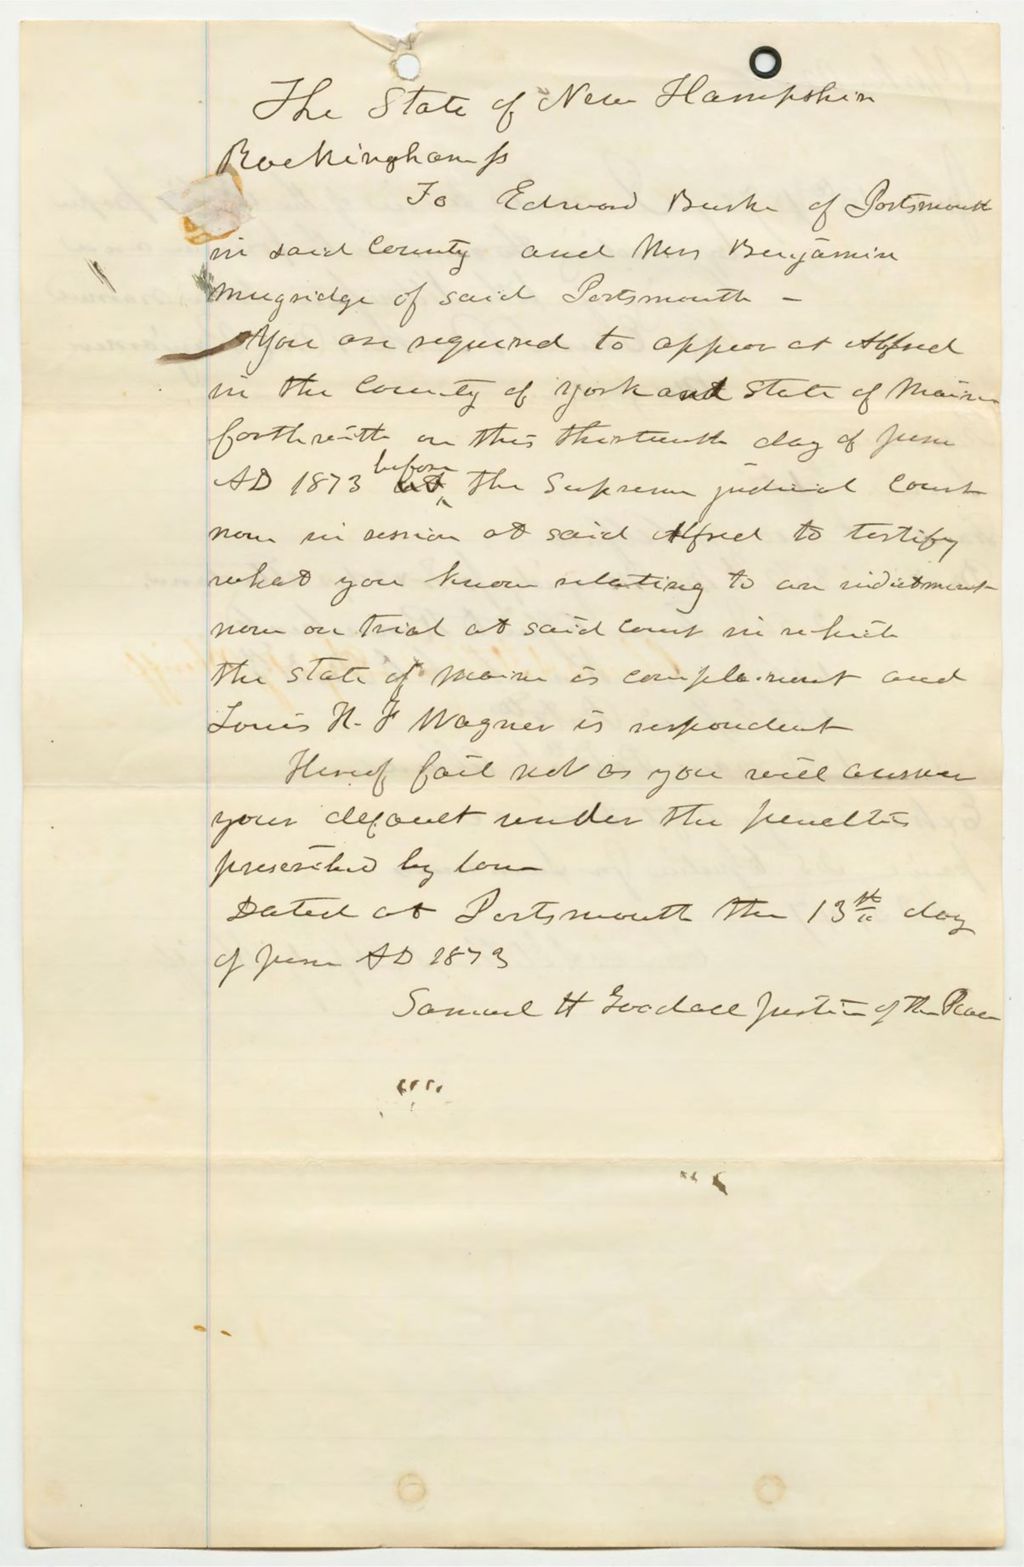 The State of New Hampshire
Rockingham ss
To Edward Burke of Portsmouth
in said County and Mrs Benjamin
Mugridge of said Portsmouth -
You are required to appear at Alfred
in the County of York and State of Maine
forthwith on this thirteenth day of June
AD 1873 before the Supreme judicial Court
now in session at said Alfred to testify
what you know relating to an indictment
now on trial at said Court in which
the State of Maine is complainant and
Louis H. F Wagner is respondent
Hereof fail not as you will answer
your default under the penalties
prescribed by law
Dated at Portsmouth the 13th day
of June AD 1873
Samuel H Goodall Justice of the Peace